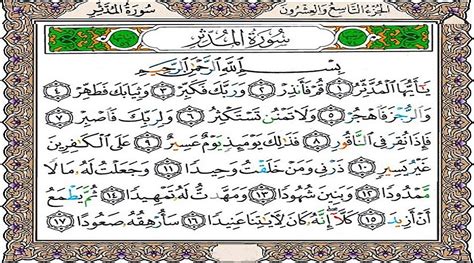 سورة المدثر
الجزء التاسع والعشرون
سورة المدثر
بسم الله الرحمن الرحيم
يَٰٓأَيُّهَا ٱلْمُدَّثِّرُ ١ قُمْ فَأَنذِرْ ٢ وَرَبَّكَ فَكَبِّرْ ٣ وَثِيَابَكَ فَطَهِّرْ ٤
وَٱلرُّجْزَ فَٱهْجُرْ ٥ وَلَا تَمْنُن تَسْتَكْثِرُ ٦ وَلِرَبِّكَ فَٱصْبِرْ ٧
فَإِذَا نُقِرَ فِى ٱلنَّاقُورِ ٨ فَذَٰلِكَ يَوْمَئِذٍ يَوْمٌ عَسِيرٌ ٩ عَلَى ٱلْكَٰفِرِينَ
غَيْرُ يَسِيرٍ ١٠ ذَرْنِى وَمَنْ خَلَقْتُ وَحِيدًا ١١ وَجَعَلْتُ لَهُۥ مَالًا
مَّمْدُودًا ١٢ وَبَنِينَ شُهُودًا ١٣ وَمَهَّدتُّ لَهُۥ تَمْهِيدًا ١٤ ثُمَّ يَطْمَعُ
أَنْ أَزِيدَ ١٥ كَلَّآ إِنَّهُۥ كَانَ لِءَايَٰتِنَا عَنِيدًا ١٦ سَأُرْهِقُهُۥ صَعُودًا ١٧